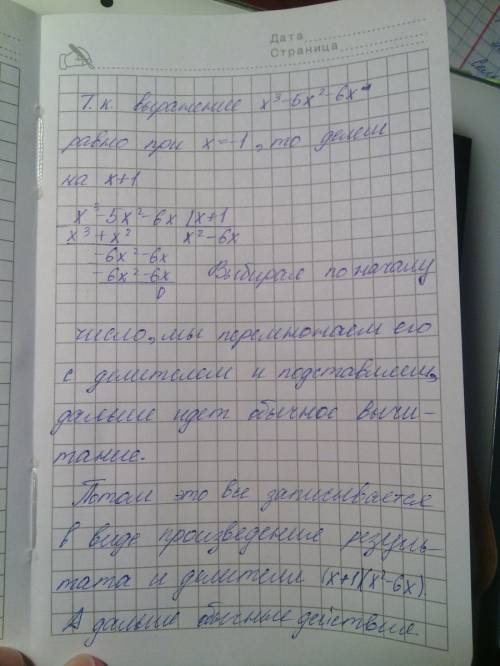 Дата
Страница
Т.к. выражение x³-5x²-6x
равно при x=-1, то делем
на x+1
x³-5x²-6x | x+1
x³+x² x²-6x
-6x²-6x
-6x²-6x Выбирая поначалу
0
число, мы перемножаем его
с делителем и подставляем,
дальше идет обычное вычи-
тание.
Потом это все записывается
в виде произведение резуль-
тата и делителя (x+1)(x²-6x)
А дальше обычные действия.